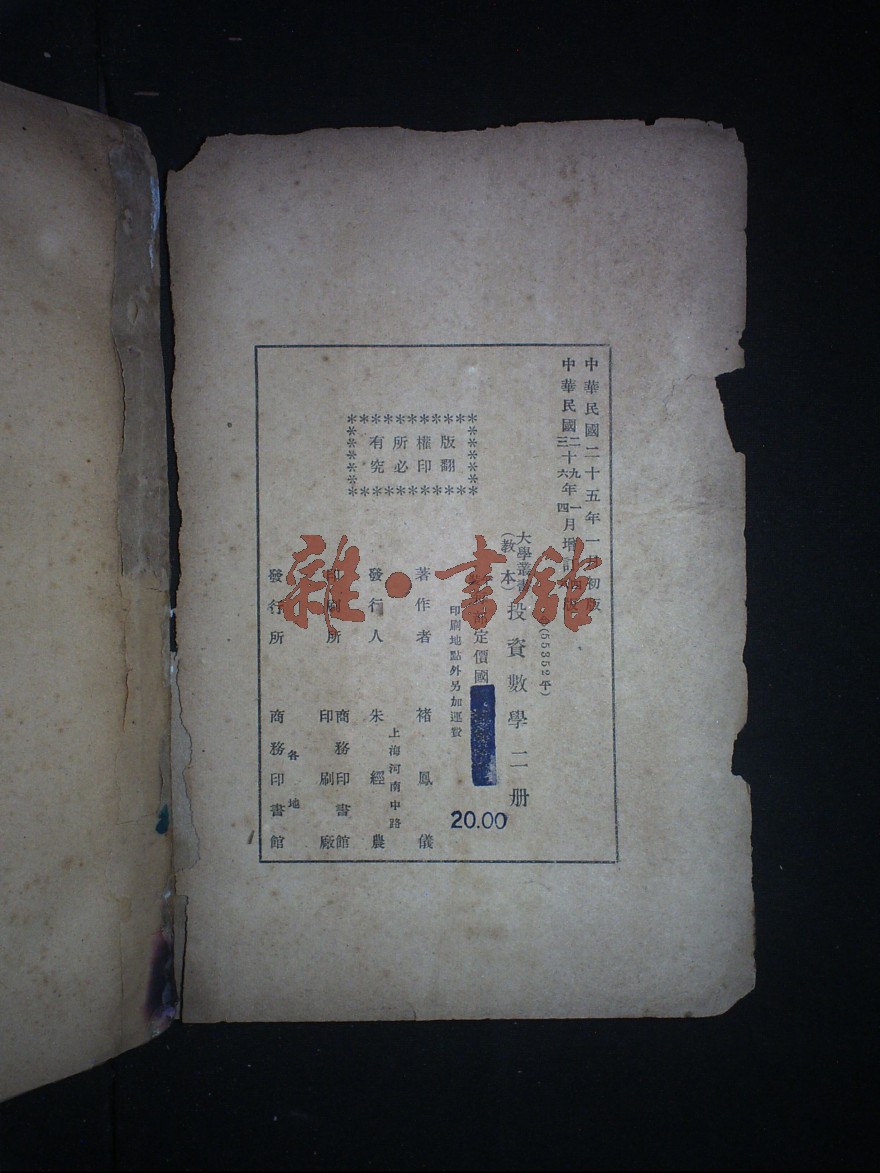 中華民國二十五年一月初版
中華民國二十九年一月增訂
三十六年四月
(55352平)
大學叢書
(教本)投資數學二册
定價國
20.00
印刷地點外另加運費
版權所有
翻印必究
著作者 褚鳳儀
發行人 朱經農
上海河南中路
印刷所 商務印書館
印刷廠
發行所 商務印書館
各地
雜·書館